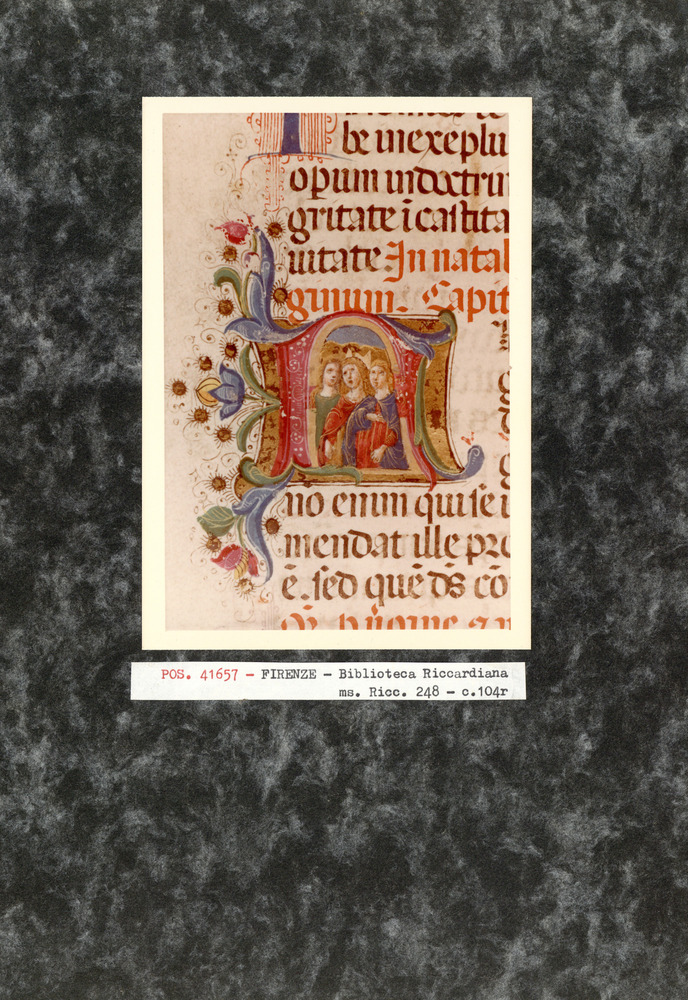 be inexeplu
opum in doctrin
gritate i castita
uitate. In natal
ginum. Capit
N
nō enim qui se i
mendat ille pro
ē. sed quē ds̄ cō
POS. 41657 - FIRENZE - Biblioteca Riccardiana
ms. Ricc. 248 - c.104r